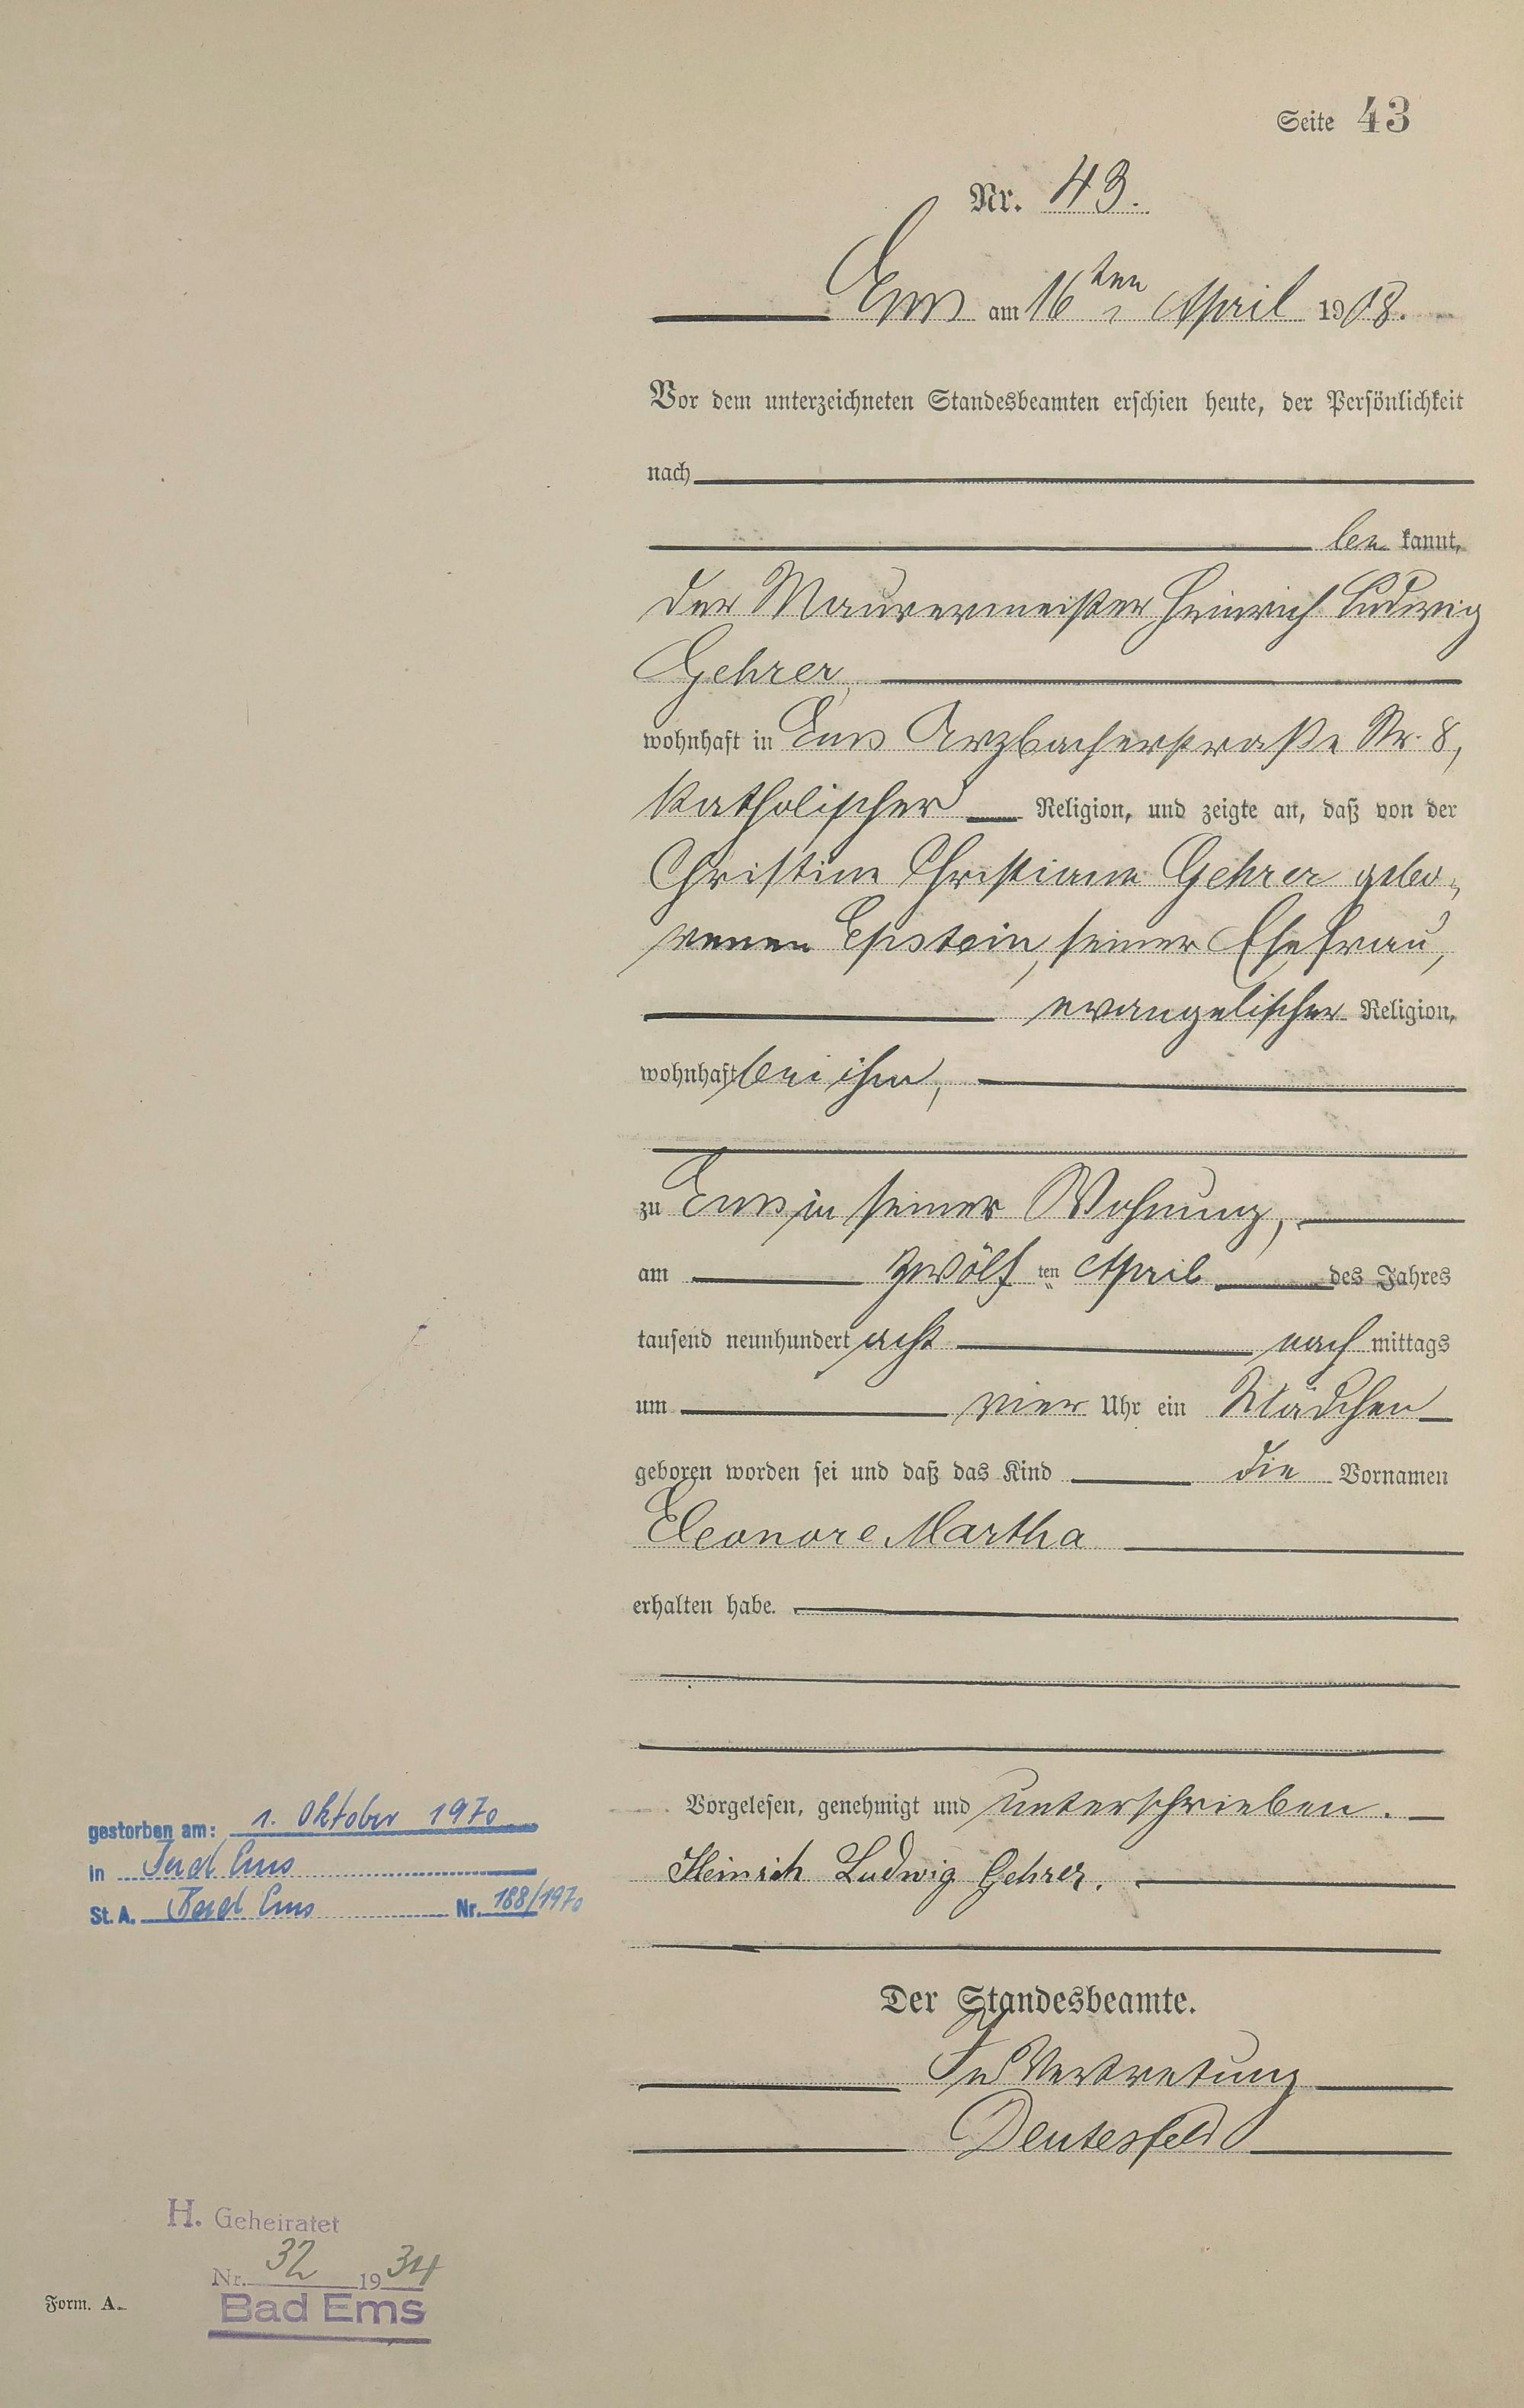 Seite 43
Nr. 43.
Ems am 16ten April 1908.
Vor dem unterzeichneten Standesbeamten erschien heute, der Persönlichkeit
nach
be kannt,
der Maurermeister Heinrich Ludwig
Gehrer,
wohnhaft in Ems Arzbacherstraße Nr. 8,
katholischer Religion, und zeigte an, daß von der
Christine Christiane Gehrer gebo-
renen Epstein, seiner Ehefrau,
evangelischer Religion,
wohnhaft bei ihm,
zu Ems in seiner Wohnung,
am zwölf ten April des Jahres
tausend neunhundert acht nach mittags
um vier Uhr ein Mädchen
geboren worden sei und daß das Kind die Vornamen
Eleonore Martha
erhalten habe.
Vorgelesen, genehmigt und unterschrieben.
Heinrich Ludwig Gehrer.
Der Standesbeamte.
In Vertretung
Deutesfeld
gestorben am: 1. Oktober 1970
in Bad Ems
St. A. Bad Ems Nr. 188/1970
H. Geheiratet
Nr. 32 1934
Bad Ems
Form. A.